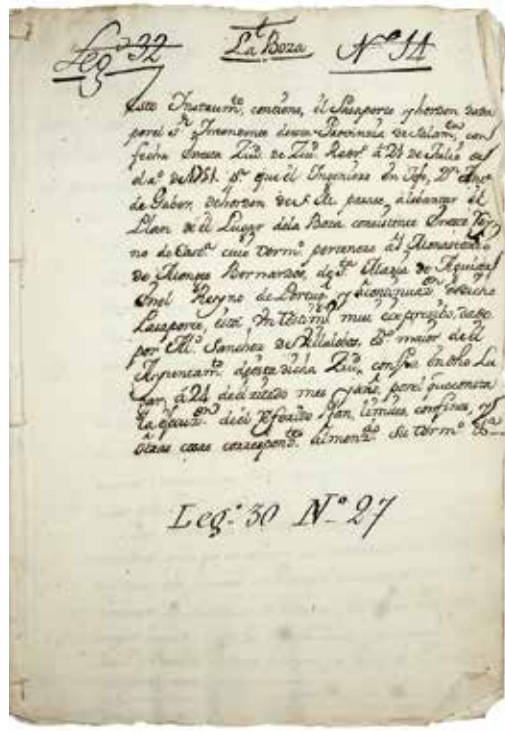 Leg.º 32 La Boza N.º 14
Este Instrum.to, contiene, él Pasaporte, y horden dada
por el S.r Intendente desta Provincia de Salam.ca con
fecha en esta Ziu.d de Ziu.d Rodr.º á 21 de Julio de
el a.º de 1751. p.a que el Ingeniero en Jefe, D.n Ant.º
de Gaber, de horden de S. M. pasase, á lebantar él
Plan de él Lugar dela Boza consistente en este Rey
no de Cast.a cuio termº. pertenece al Monasterio
de Monges Bernardos, de S.ta Maria de Aguiar
en el Reyno de Portug.l y á continuaz.on de dicho
Pasaporte, está, un testim.º mui expresibo, dado
por M.l Sanchez de Villalobos, Es.no maior de él
Ayuntam.to desta dicha Ziu.d con fha en dho Lu
gar, á 24 de él zitado mes y año, por el que consta
la ejecuz.on de él referido Plan, limites, confines, y
otras cosas correspond.tes al menz.do su term.º &.a
Leg.º 30 N.º 27